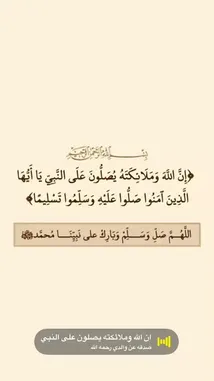 بسم الله الرحمن الرحيم
﴿إِنَّ اللَّهَ وَمَلَائِكَتَهُ يُصَلُّونَ عَلَى النَّبِيِّ يَا أَيُّهَا
الَّذِينَ آمَنُوا صَلُّوا عَلَيْهِ وَسَلِّمُوا تَسْلِيمًا﴾
اللَّهُمَّ صَلِّ وَسَلِّمْ وَبَارِكْ على نَبِيِّنَا مُحمَّدﷺ
إن الله وملائكته يصلون على النبي
صدقه عن والدي رحمه الله